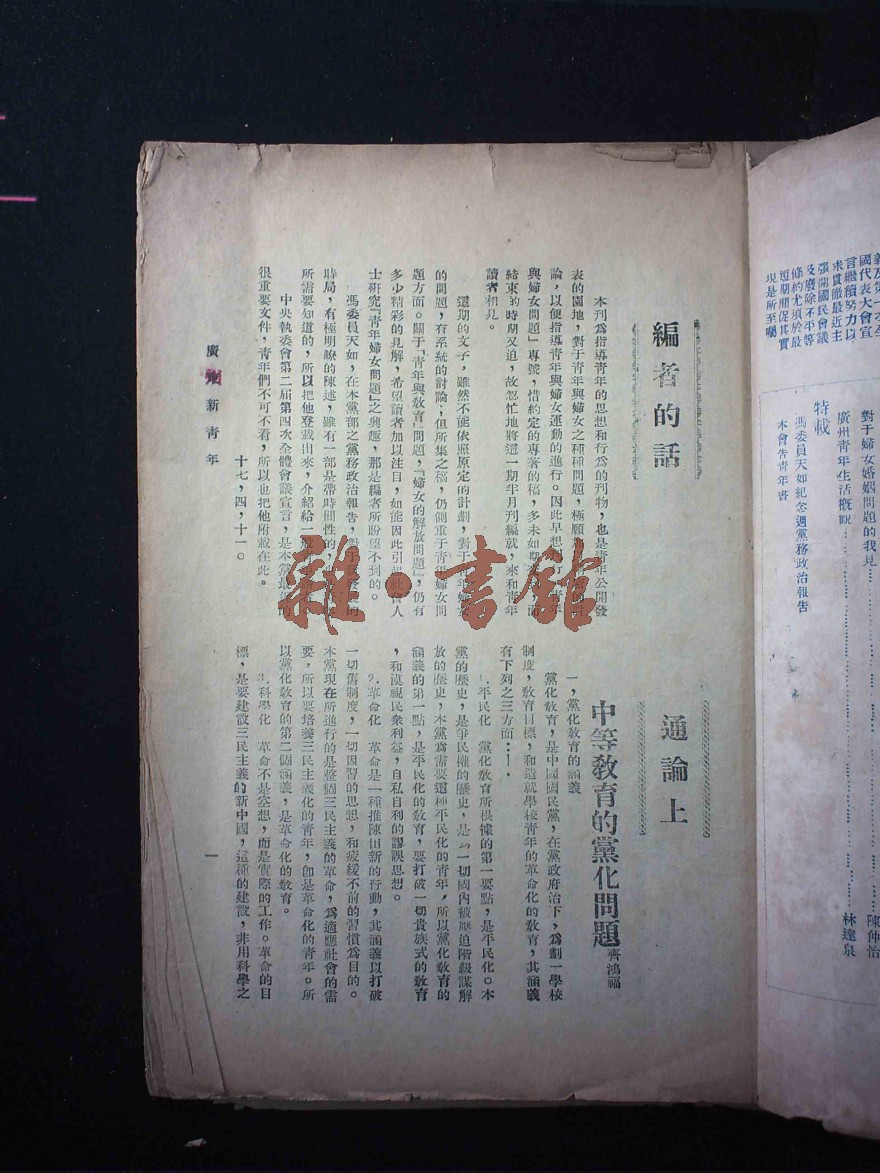 義及第一次全
國代表大會宣
言繼續努力以
求貫徹最近主
張開國民會議
及廢除不平等
條約尤須於最
短期間促其實
現是所至囑
對于婦女婚姻問題的我見……陳仲怡
廣州青年生活概觀……林達泉
特載
馮委員天如紀念週黨務政治報告
本會告青年書
編者的話
本刊爲指導青年的思想和行爲的刊物，也是青年公開發
表的園地，對于青年與婦女之種種問題，極願
論，以便指導青年與婦女運動的進行。因此早想
與婦女問題」專號，惜約定的專著的稿，多未如期
結束的時期又迫，故怱忙地將這一期半月刊編就，來和青年
讀者相見。
這期的文子，雖然不能依照原定的計劃，對于青年婦女
的問題，有系統的討論；但所集之稿，仍側重于青年婦女問
題方面。關于「青年與敎育」問題，「婦女的解放問題」，仍有
多少精彩的見解，希望讀者加以注目，如能因此引起社會人
士研究『青年婦女問題』之興趣，那是編者所盼望不到的。
馮委員天如，在本黨部之黨務政治報告，對于
時局，有極明瞭的陳述，雖有一部是帶時間性的，
所需要知道的，所以把他登載出來，介紹給一般
中央執委會第二屆第四次全體會議宣言，是本黨最近的
很重要文件，青年們不可不看，所以也把他附載在此。
十七，四，十一。
通論上
中等敎育的黨化問題 齊鴻福
一，黨化敎育的涵義
黨化敎育，是中國國民黨，在黨政府治下，爲劃一學校
制度，敎育目標，和造就學校青年的革命化的敎育，其涵義
有下列之三方面：—
1.平民化　黨化敎育所根據的第一要點，是平民化。本
黨的歷史，是爭民權的歷史，是爲一切國內被壓迫階級謀解
放的歷史，本黨爲需要這種平民化的青年，所以黨化敎育的
涵義的第一點，是平民化的敎育，要打破一切貴族式的敎育
，和漠視民衆利益，自私自利的謬誤思想。
2.革命化　革命是一種推陳出新的行動，其涵義以打破
一切舊制度，一切因習的思想，和疲緩不前的習慣爲目的。
本黨現在所進行的是整個三民主義的革命，爲適應社會的需
要，所以要培養三民主義化的青年，卽是革命化的青年。所
以黨化敎育的第二個涵義，是革命化的敎育。
3.科學化　革命不是空想，而是實際的工作。革命的目
標，是要建設三民主義的新中國，這種的建設，非用科學之
廣州新青年
一
雜·書館